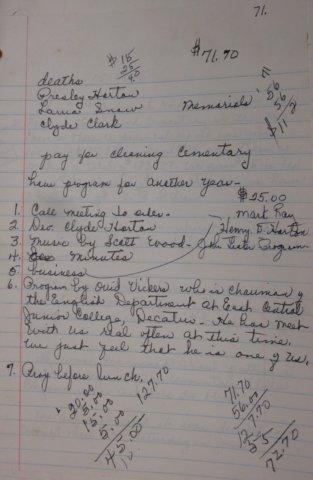 71.
$15
25
40
$71.70
deaths
Presley Horton
Laura Snow
Memorials
Clyde Clark
pay for cleaning cementary
have program for another year-
$25.00
1. Call meeting to order.
Mark Ray
2. Dev. Clyde Horton
Henry E. Horton
3. Music by Scott
4. Minutes
5. business
6. Program by Ovid Vickers who is chairman of
the English Department at East Central
Junior College, Decatur. He has meet
with us real often at this time.
We just feel that he is one of us.
7. Pray before lunch.
127.70
20.00
5.00
15.00
5.00
45.00
71.70
56.00
127.70
55
72.70